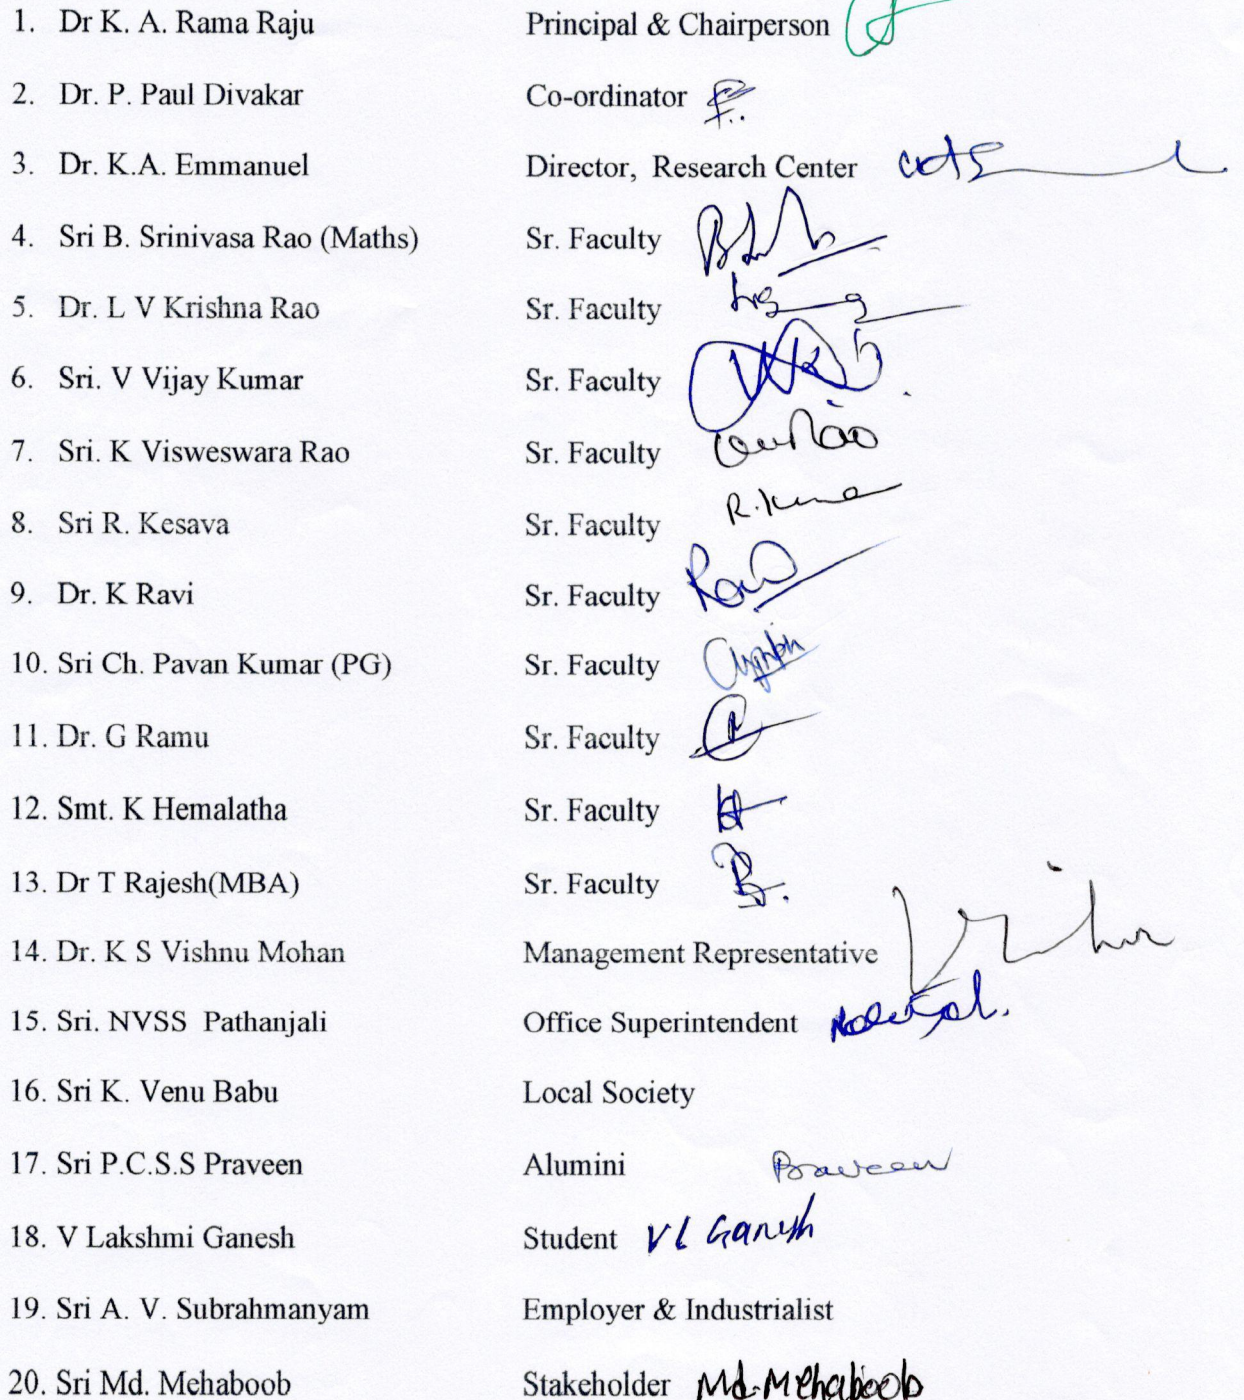 1. Dr K. A. Rama Raju Principal & Chairperson
2. Dr. P. Paul Divakar Co-ordinator
3. Dr. K.A. Emmanuel Director, Research Center
4. Sri B. Srinivasa Rao (Maths) Sr. Faculty
5. Dr. L V Krishna Rao Sr. Faculty
6. Sri. V Vijay Kumar Sr. Faculty
7. Sri. K Visweswara Rao Sr. Faculty
8. Sri R. Kesava Sr. Faculty
9. Dr. K Ravi Sr. Faculty
10. Sri Ch. Pavan Kumar (PG) Sr. Faculty
11. Dr. G Ramu Sr. Faculty
12. Smt. K Hemalatha Sr. Faculty
13. Dr T Rajesh(MBA) Sr. Faculty
14. Dr. K S Vishnu Mohan Management Representative
15. Sri. NVSS Pathanjali Office Superintendent
16. Sri K. Venu Babu Local Society
17. Sri P.C.S.S Praveen Alumini Praveen
18. V Lakshmi Ganesh Student V L Ganesh
19. Sri A. V. Subrahmanyam Employer & Industrialist
20. Sri Md. Mehaboob Stakeholder Md. Mehaboob